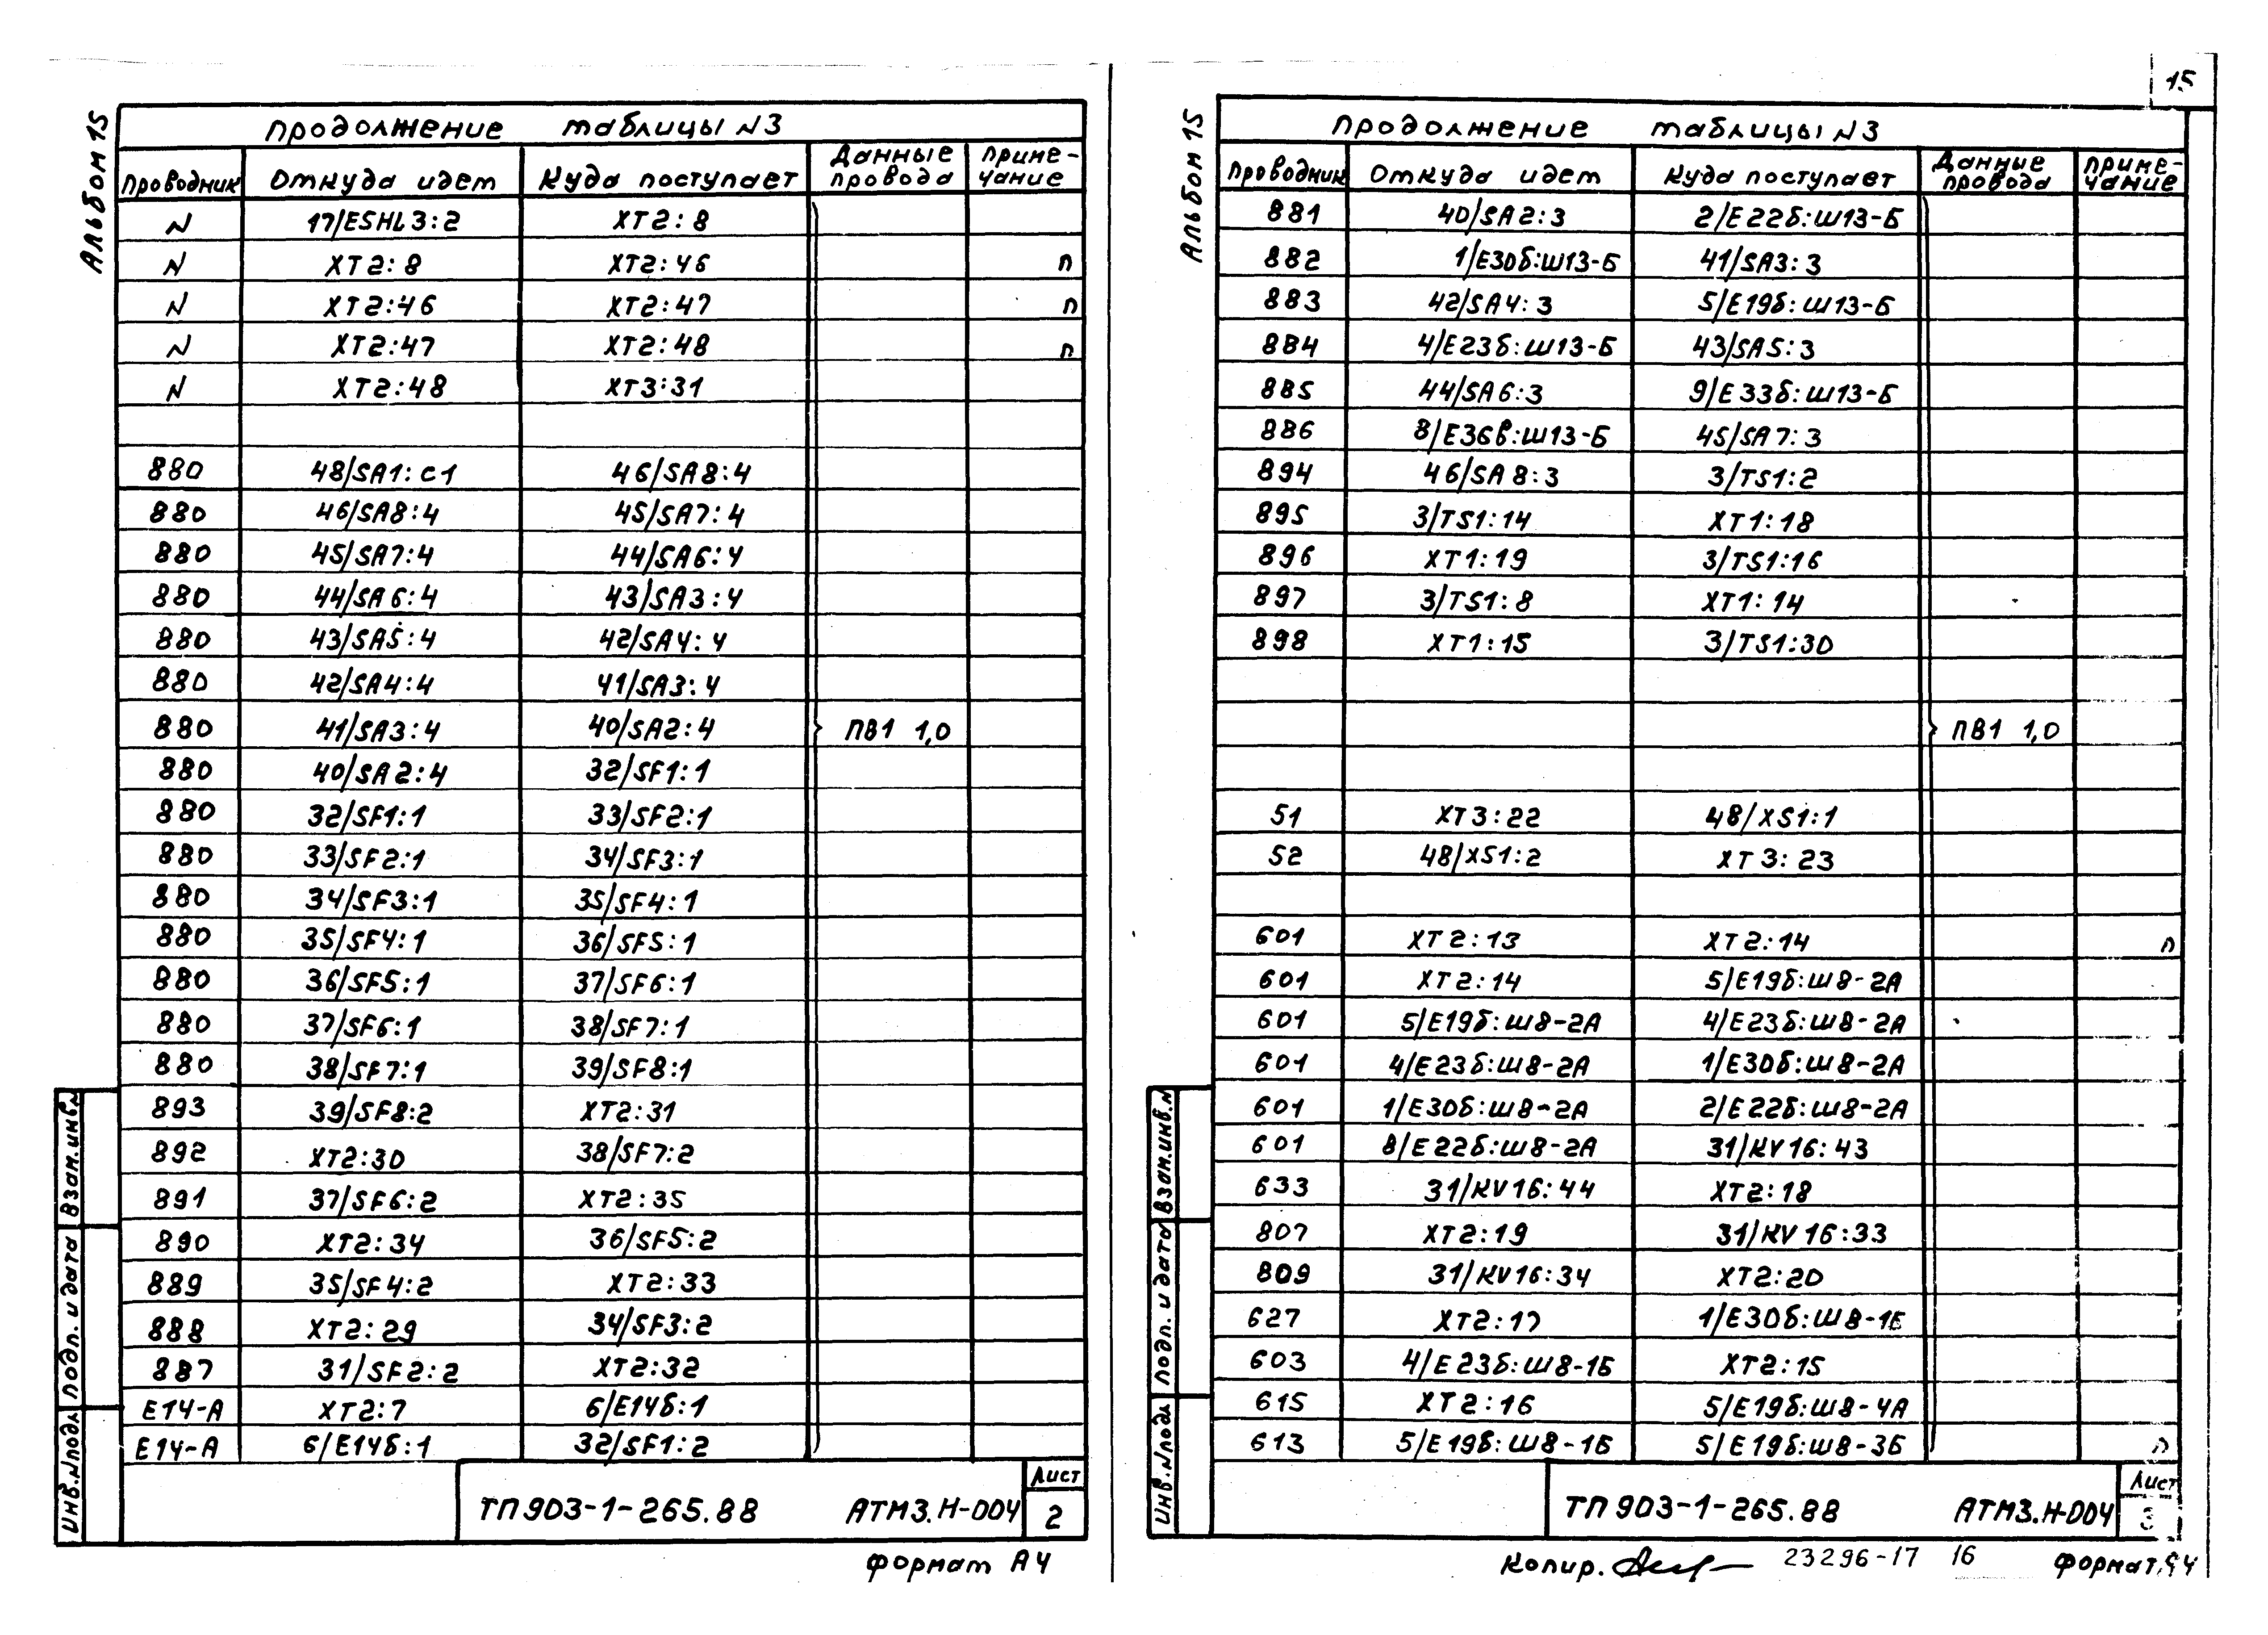 Альбом 15
продолжение таблицы N3
Проводник Откуда идет Куда поступает Данные провода Приме-чание
N 17/ESHL3:2 XT2:8
N XT2:8 XT2:46 п
N XT2:46 XT2:47 п
N XT2:47 XT2:48 п
N XT2:48 XT3:31
880 48/SA1:C1 46/SA8:4
880 46/SA8:4 45/SA7:4
880 45/SA7:4 44/SA6:4
880 44/SA6:4 43/SA3:4
880 43/SA5:4 42/SA4:4
880 42/SA4:4 41/SA3:4
880 41/SA3:4 40/SA2:4 ПВ1 1,0
880 40/SA2:4 32/SF1:1
880 32/SF1:1 33/SF2:1
880 33/SF2:1 34/SF3:1
880 34/SF3:1 35/SF4:1
880 35/SF4:1 36/SF5:1
880 36/SF5:1 37/SF6:1
880 37/SF6:1 38/SF7:1
880 38/SF7:1 39/SF8:1
893 39/SF8:2 XT2:31
892 XT2:30 38/SF7:2
891 37/SF6:2 XT2:35
890 XT2:34 36/SF5:2
889 35/SF4:2 XT2:33
888 XT2:29 34/SF3:2
887 31/SF2:2 XT2:32
E14-A XT2:7 6/E14б:1
E14-A 6/E14б:1 32/SF1:2
Взам.инв.N
Подп. и дата
Инв.Nподл
ТП 903-1-265.88 АТМ3.Н-004
Лист
2
Формат А4
15
Альбом 15
продолжение таблицы N3
Проводник Откуда идет Куда поступает Данные провода Приме-чание
881 40/SA2:3 2/E22б:Ш13-Б
882 1/E30б:Ш13-Б 41/SA3:3
883 42/SA4:3 5/E19б:Ш13-Б
884 4/E23б:Ш13-Б 43/SA5:3
885 44/SA6:3 9/E33б:Ш13-Б
886 8/E36в:Ш13-Б 45/SA7:3
894 46/SA8:3 3/TS1:2
895 3/TS1:14 XT1:18
896 XT1:19 3/TS1:16
897 3/TS1:8 XT1:14
898 XT1:15 3/TS1:30
ПВ1 1,0
51 XT3:22 48/XS1:1
52 48/XS1:2 XT3:23
601 XT2:13 XT2:14 п
601 XT2:14 5/E19б:Ш8-2А
601 5/E19б:Ш8-2А 4/E23б:Ш8-2А
601 4/E23б:Ш8-2А 1/E30б:Ш8-2А
601 1/E30б:Ш8-2А 2/E22б:Ш8-2А
601 8/E22б:Ш8-2А 31/KV16:43
633 31/KV16:44 XT2:18
807 XT2:19 31/KV16:33
809 31/KV16:34 XT2:20
627 XT2:17 1/E30б:Ш8-1Б
603 4/E23б:Ш8-1Б XT2:15
615 XT2:16 5/E19б:Ш8-4А
613 5/E19б:Ш8-1Б 5/E19б:Ш8-3Б п
Взам.инв.N
Подп. и дата
Инв.Nподл
ТП 903-1-265.88 АТМ3.Н-004
Лист
3
Копир. 23296-17 16 Формат А4